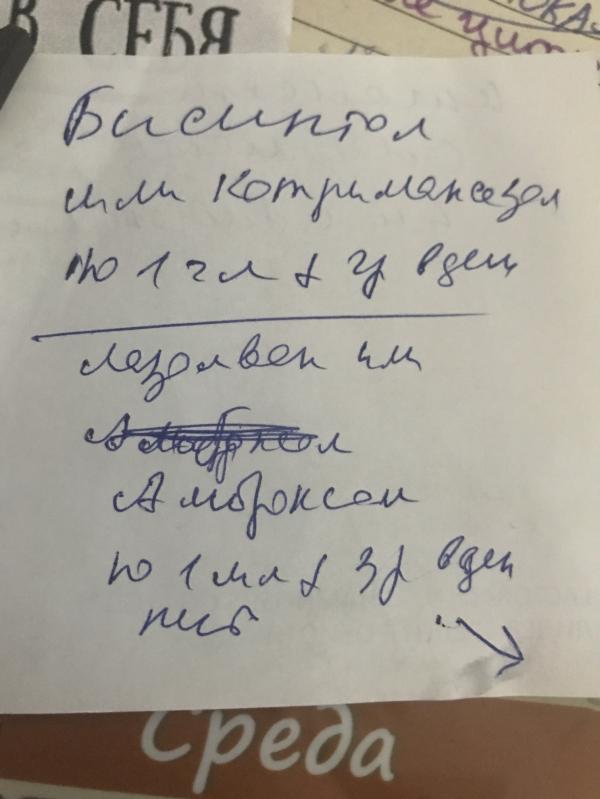 В СЕБЯ
Бисиптол
или Котримоксазол
по 1 чл х 2р в ден
Лазолвен или
Амброксол
Амброксол
по 1 мл х 3р в ден
пит
Среда